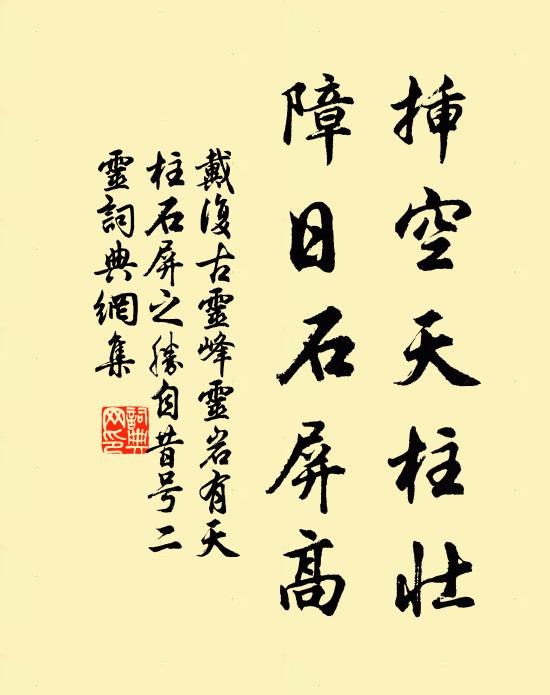 插空天柱壯
障日石屏高
戴復古靈峰靈岩有天
柱石屏之勝自昔号二
靈詞典網集
詞典网印